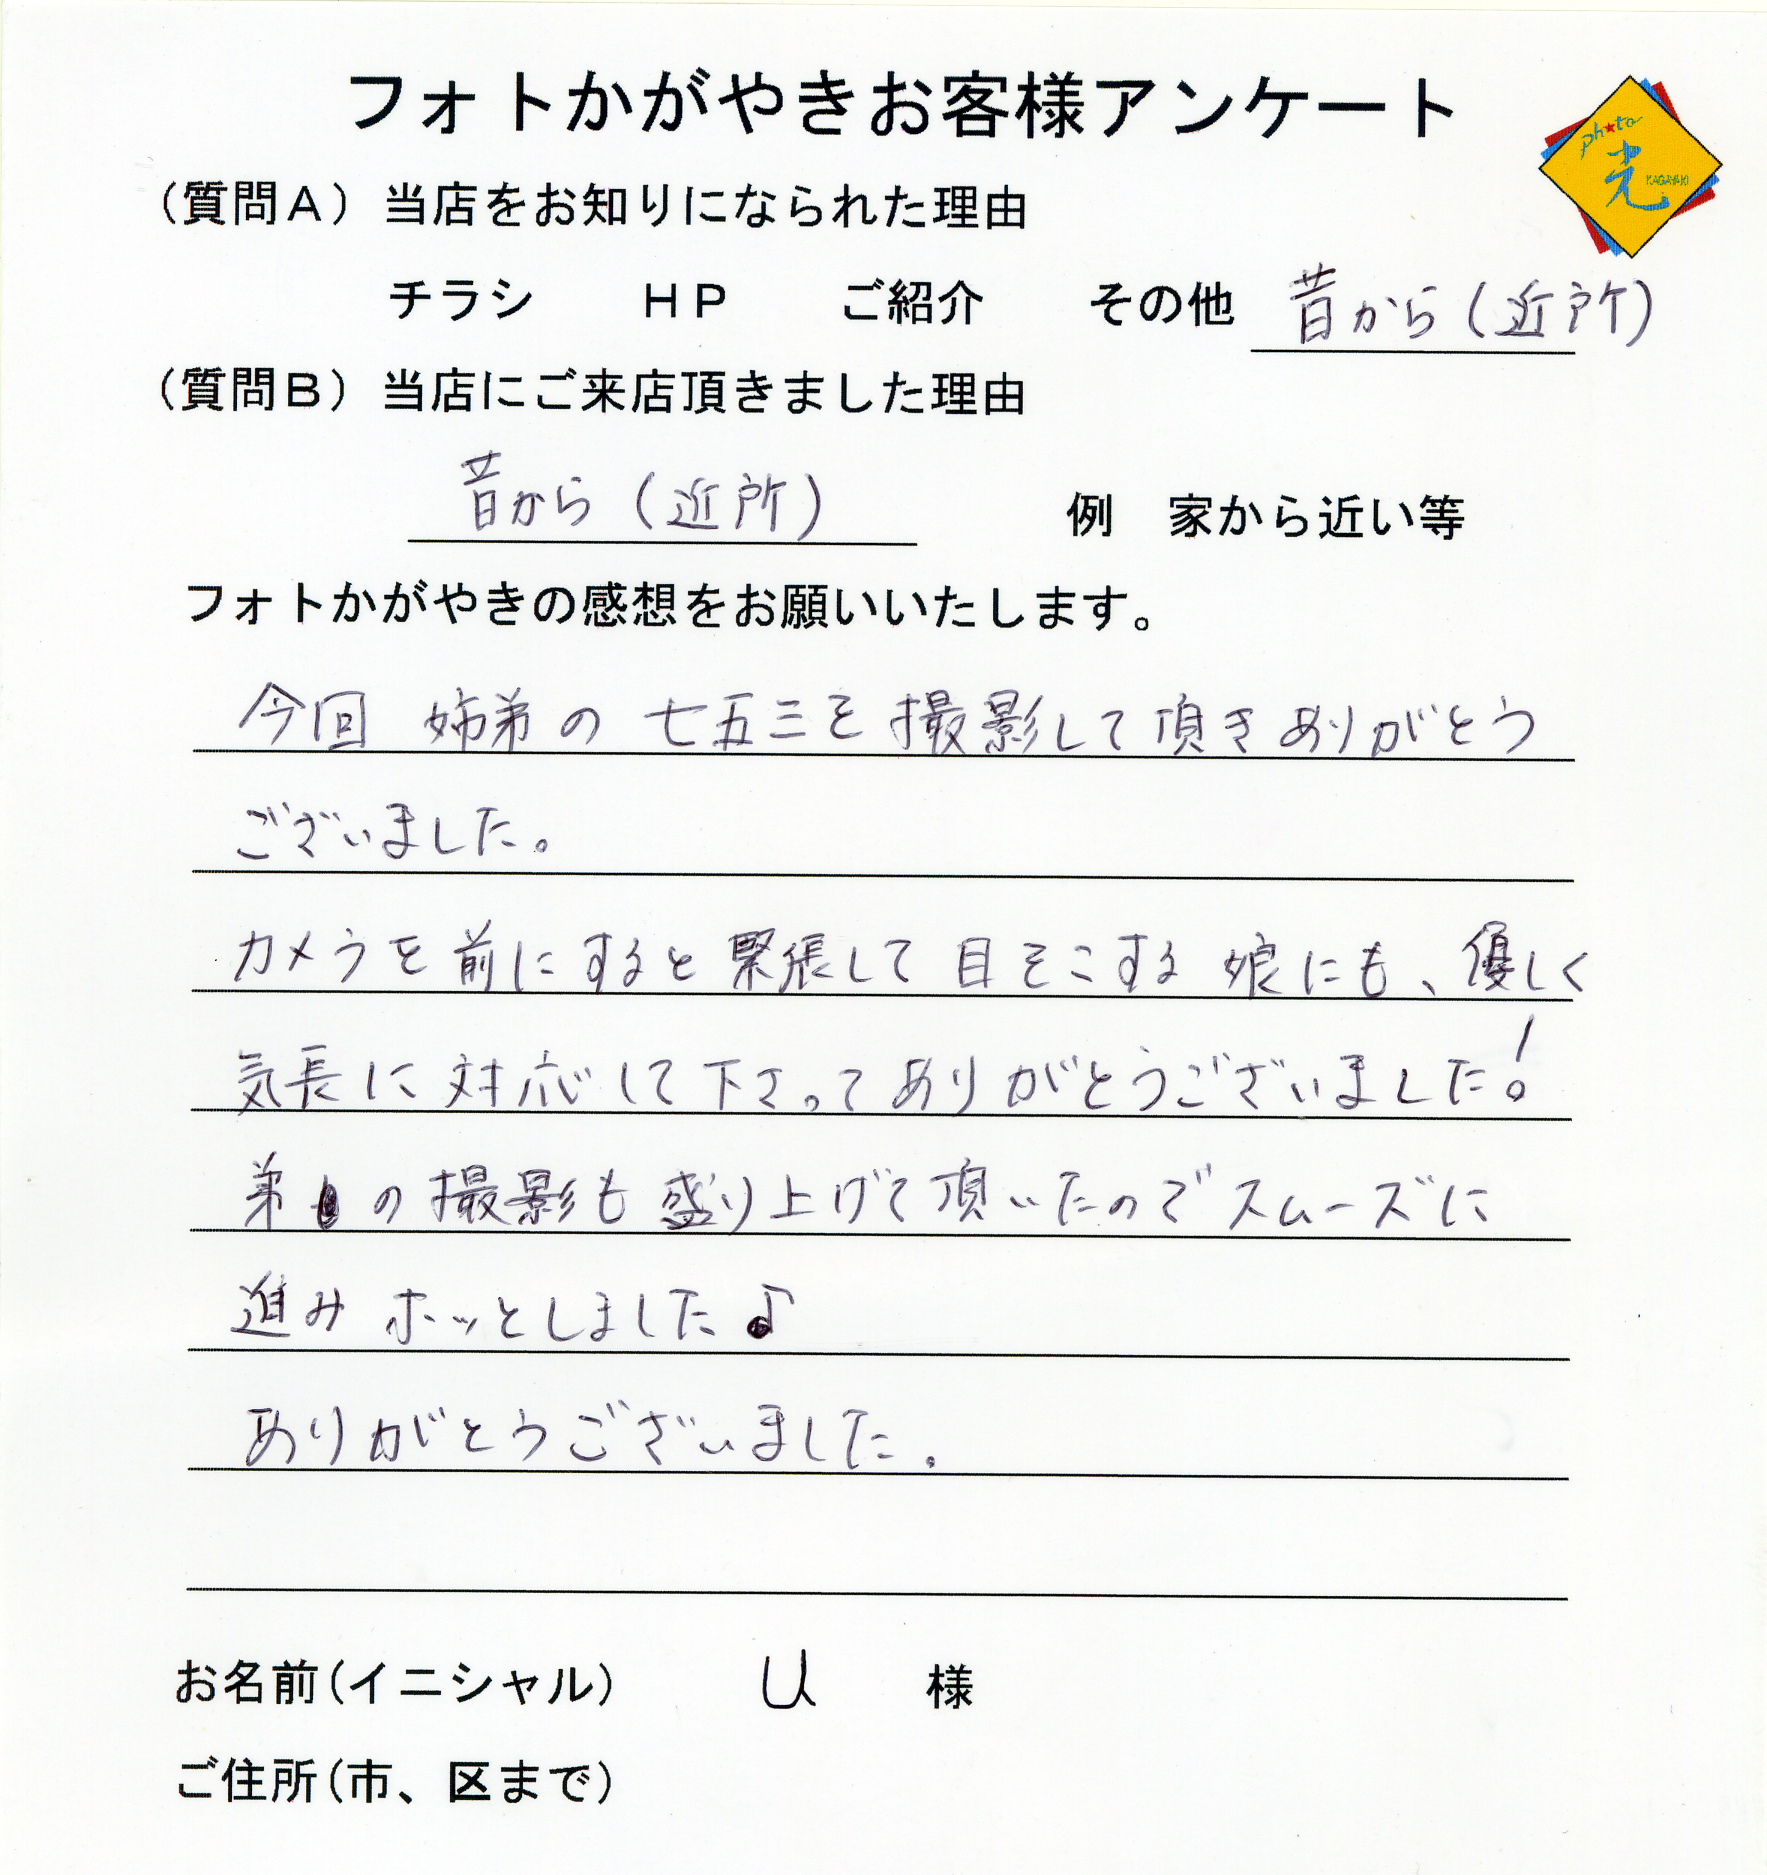 フォトかがやきお客様アンケート
photo 光 KAGAYAKI
（質問Ａ）当店をお知りになられた理由
チラシ　ＨＰ　ご紹介　その他 昔から(近所)
（質問Ｂ）当店にご来店頂きました理由
昔から(近所)　例　家から近い等
フォトかがやきの感想をお願いいたします。
今回 姉弟の 七五三を撮影して頂きありがとう
ございました。
カメラを前にすると緊張して目をこする娘にも、優しく
気長に対応して下さってありがとうございました!
弟の撮影も盛り上げて頂いたのでスムーズに
進みホッとしました♪
ありがとうございました。
お名前(イニシャル)　U　様
ご住所(市、区まで)